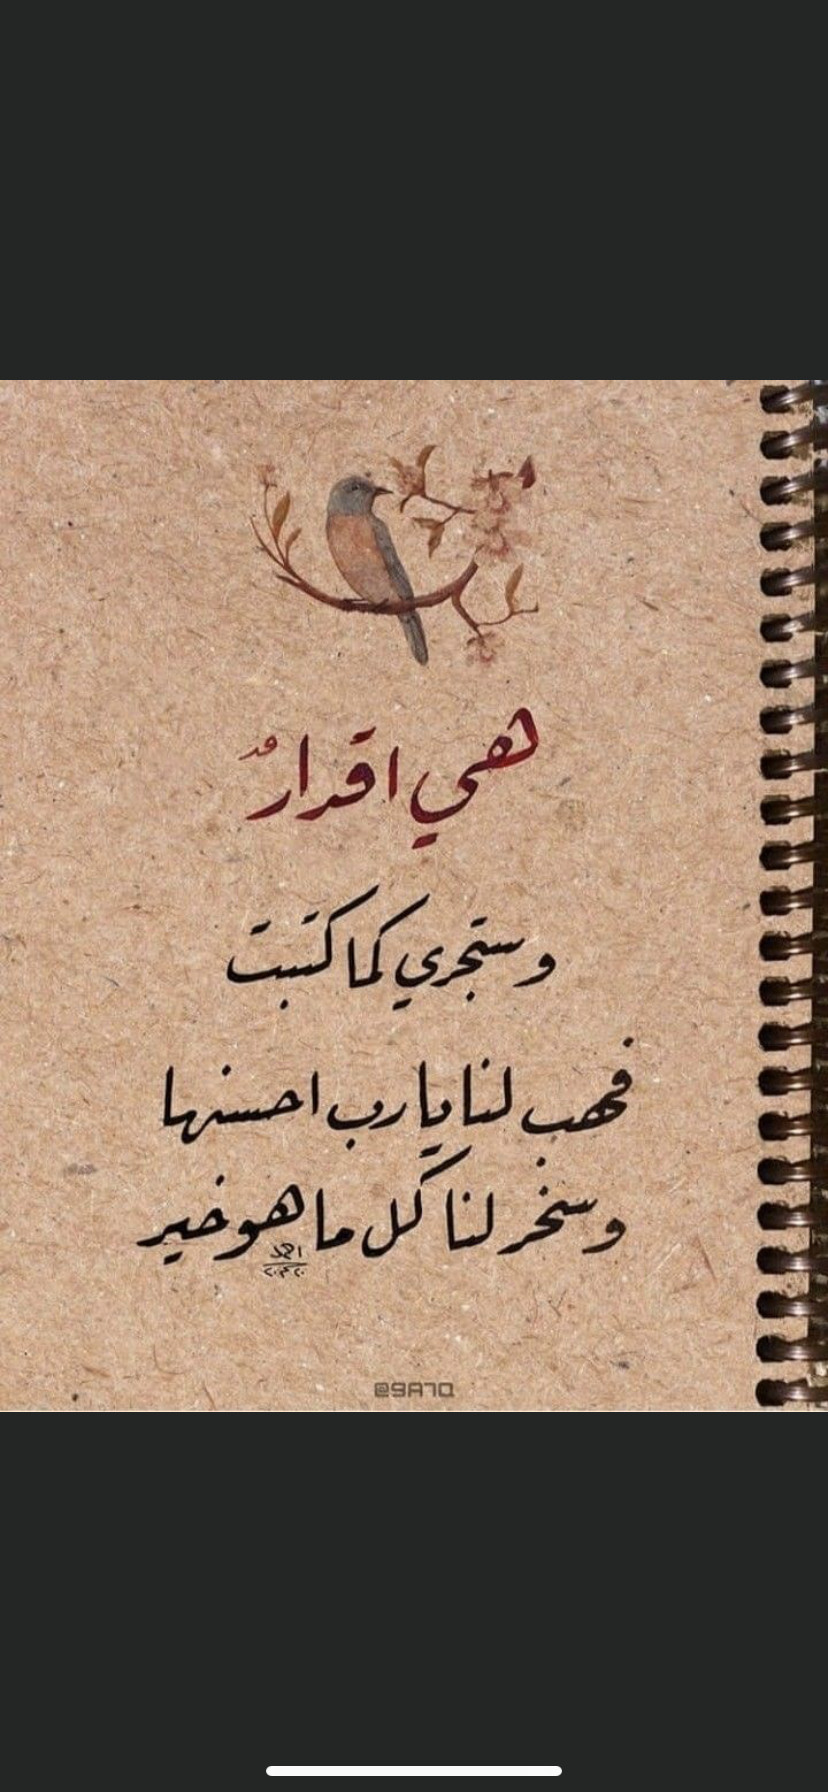 هي اقدارٌ
وستجري كما كتبت
فهب لنا يارب احسنها
وسخر لنا كل ما هو خير
احمد
@9A7Q